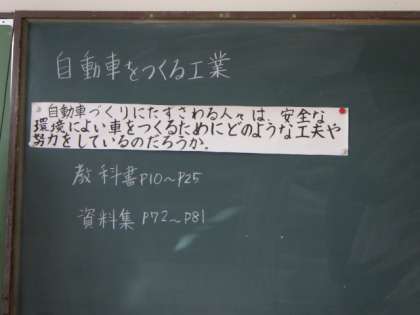 自動車をつくる工業
自動車づくりにたずさわる人々は、安全な
環境によい車をつくるためにどのような工夫や
努力をしているのだろうか。
教科書P10～P25
資料集 P72～P81